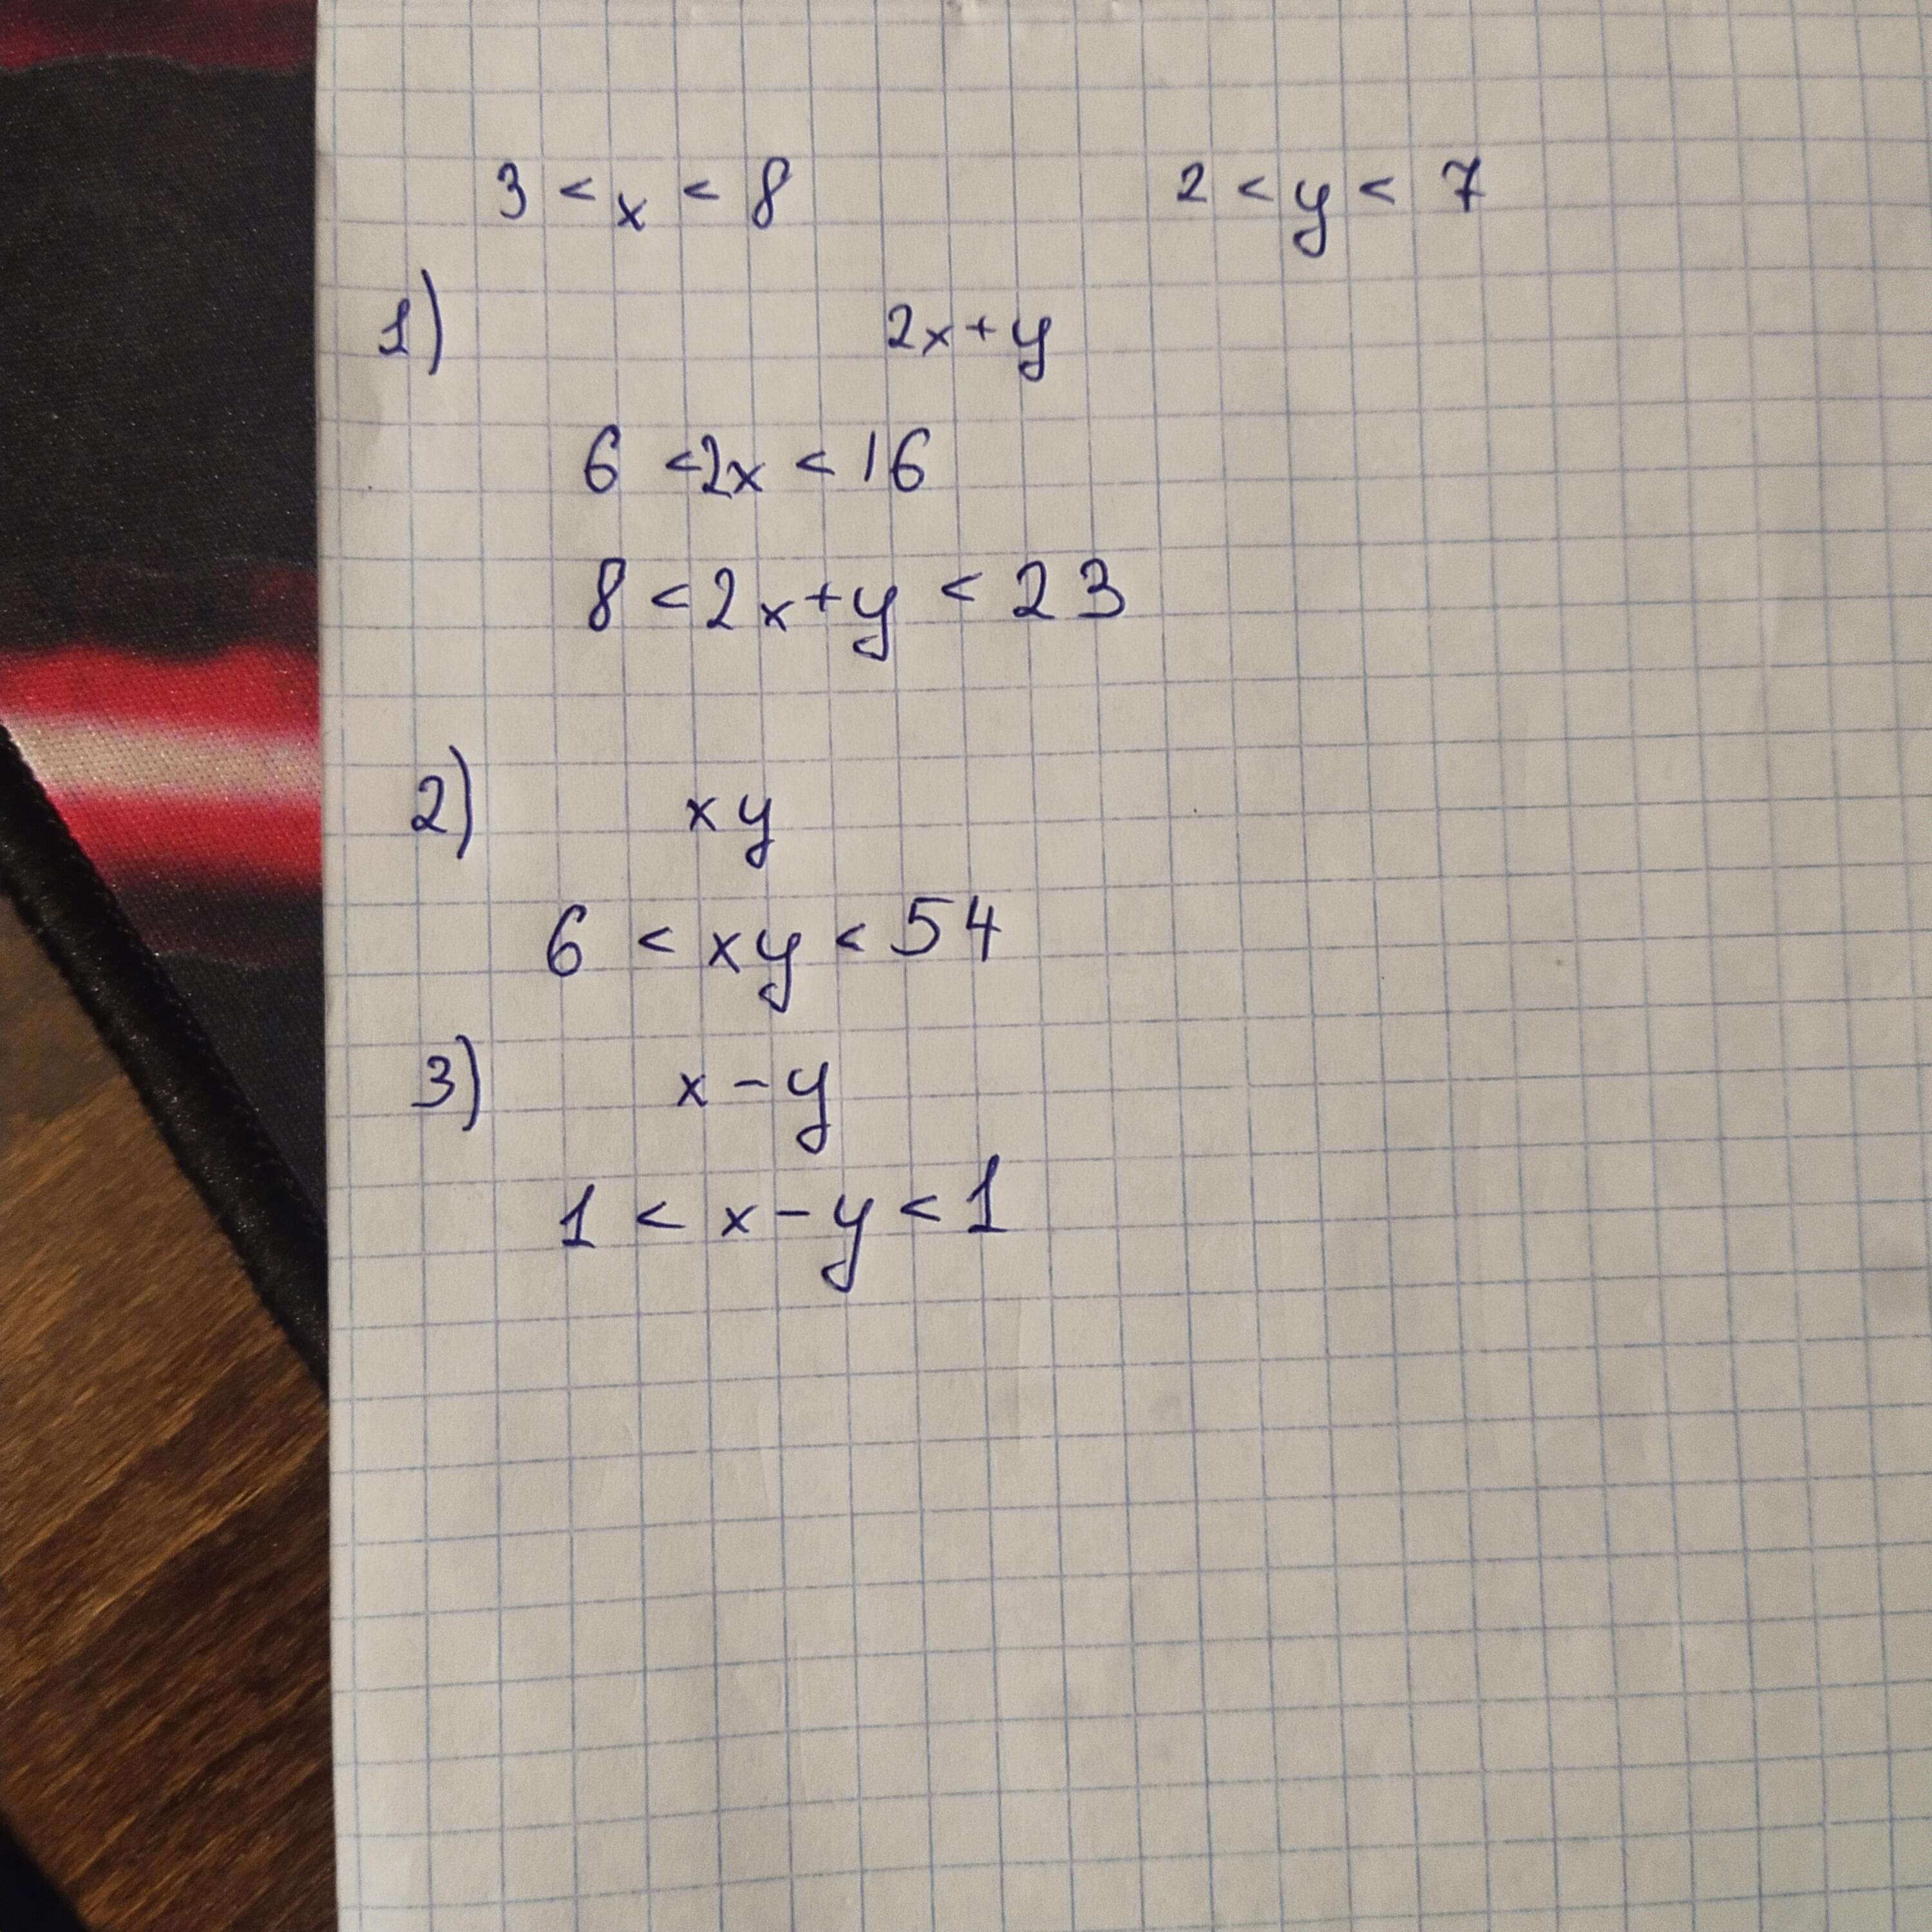 3 < x < 8 2 < y < 7
1) 2x+y
6 <2x < 16
8 < 2x+y < 23
2) xy
6 < xy < 54
3) x-y
1 < x-y < 1